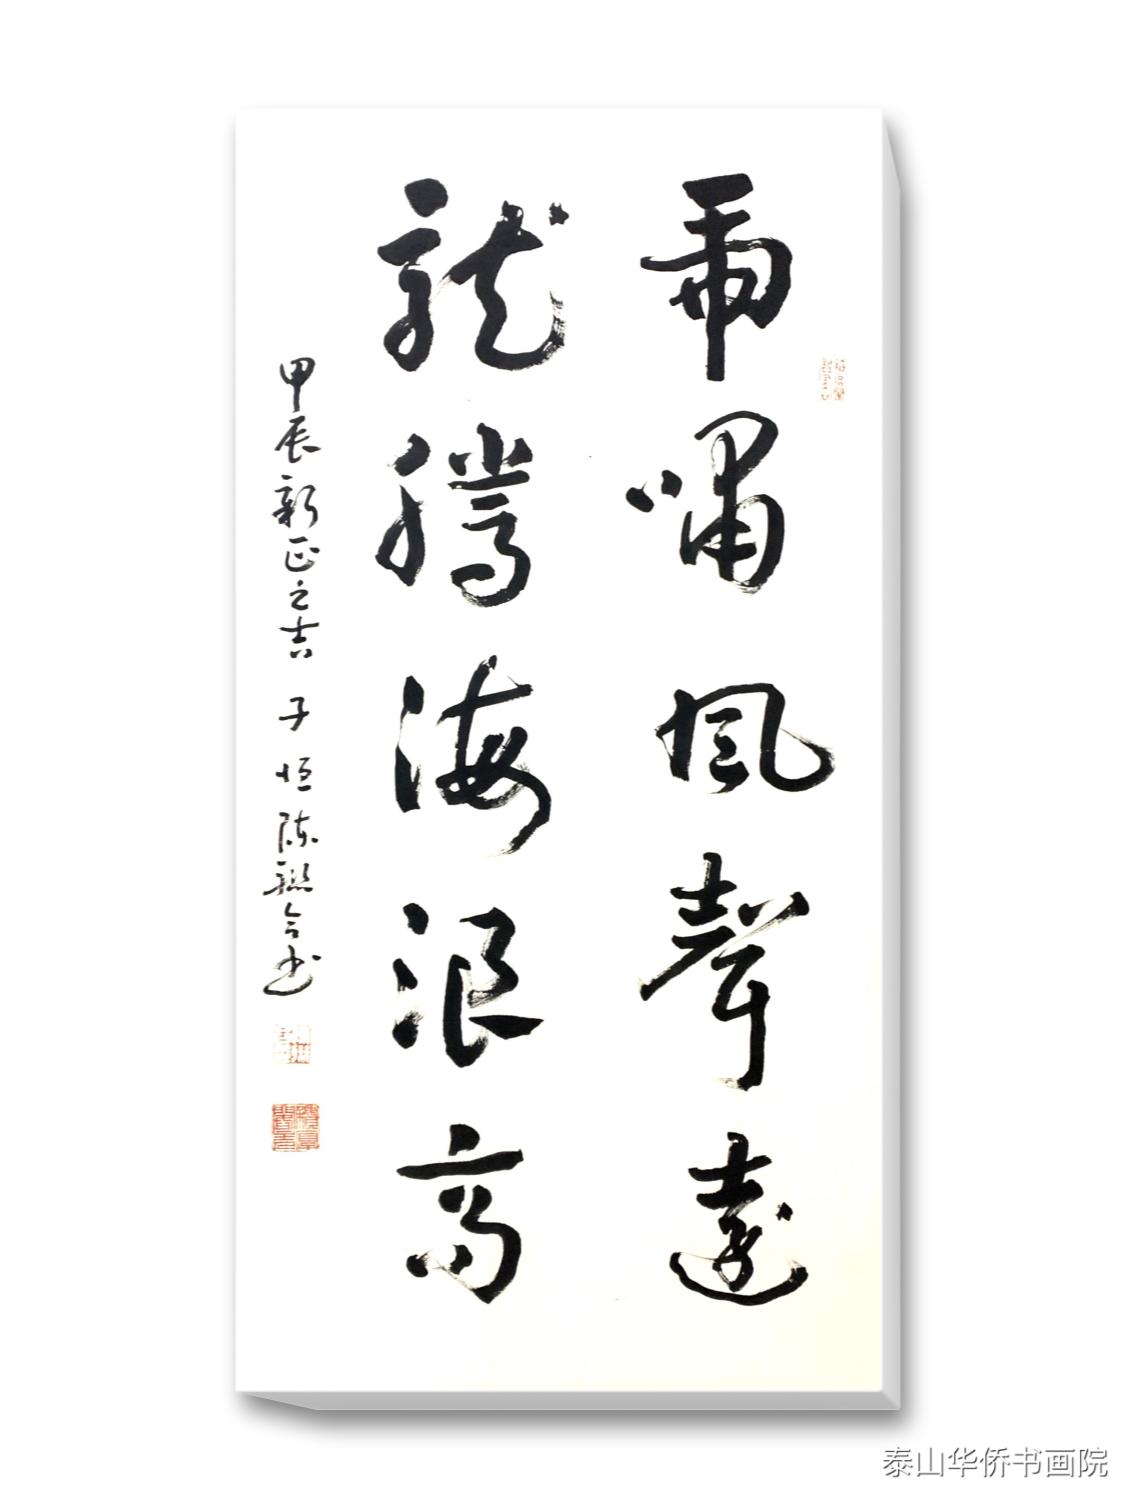 虎嘯風聲遠
龍騰海浪高
甲辰新正之吉 子恒陈联合书
泰山华侨书画院